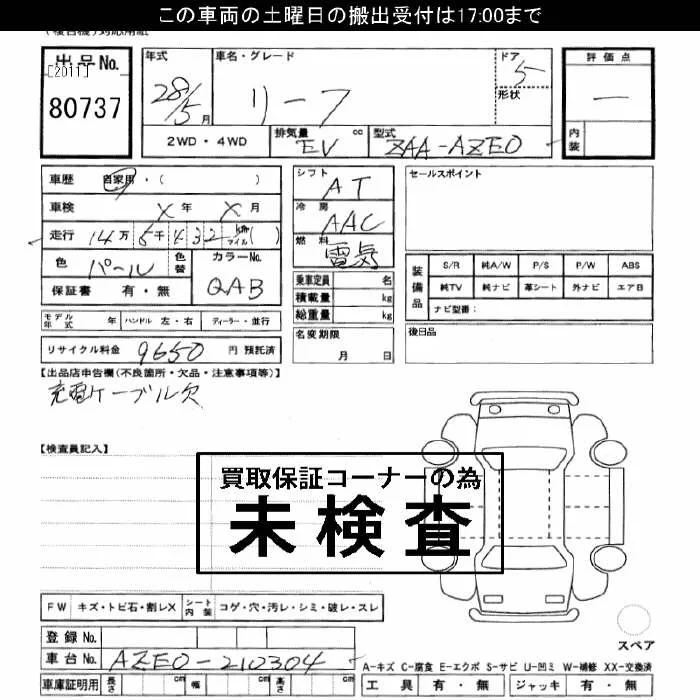 この車両の土曜日の搬出受付は17:00まで
出品No.
[2011]
80737
年式
28/5月
車名・グレード
リーフ
ドア
5
形状
評価点
ー
内装
2WD・4WD
排気量
EV
cc
型式
ZAA-AZEO
車歴 自家用・( )
車検 X年 X月
走行 14万5千432 km マイル ( )
色 パール
色替
カラーNo.
QAB
保証書 有・無
シフト
AT
冷房
AAC
燃料
電気
乗車定員 名
積載量 kg
総重量 kg
セールスポイント
装備品
S/R 純A/W P/S P/W ABS
純TV 純ナビ 革シート 外ナビ エアB
ナビ型番:
モデル年式 年 ハンドル 左・右 ディーラー・並行
リサイクル料金 9650 円 預託済
名変期限
月 日
後日品
【出品店申告欄(不良箇所・欠品・注意事項等)】
充電ケーブル欠
【検査員記入】
買取保証コーナーの為
未検査
FW キズ・トビ石・割レX シート内装 コゲ・穴・汚レ・シミ・破レ・スレ
スペア
登録No.
車台No. AZEO-210304
A-キズ C-腐食 E-エクボ S-サビ U-凹ミ W-補修 XX-交換済
車庫証明用 長さ cm 幅 cm 高さ cm
工具 有・無 ジャッキ 有・無